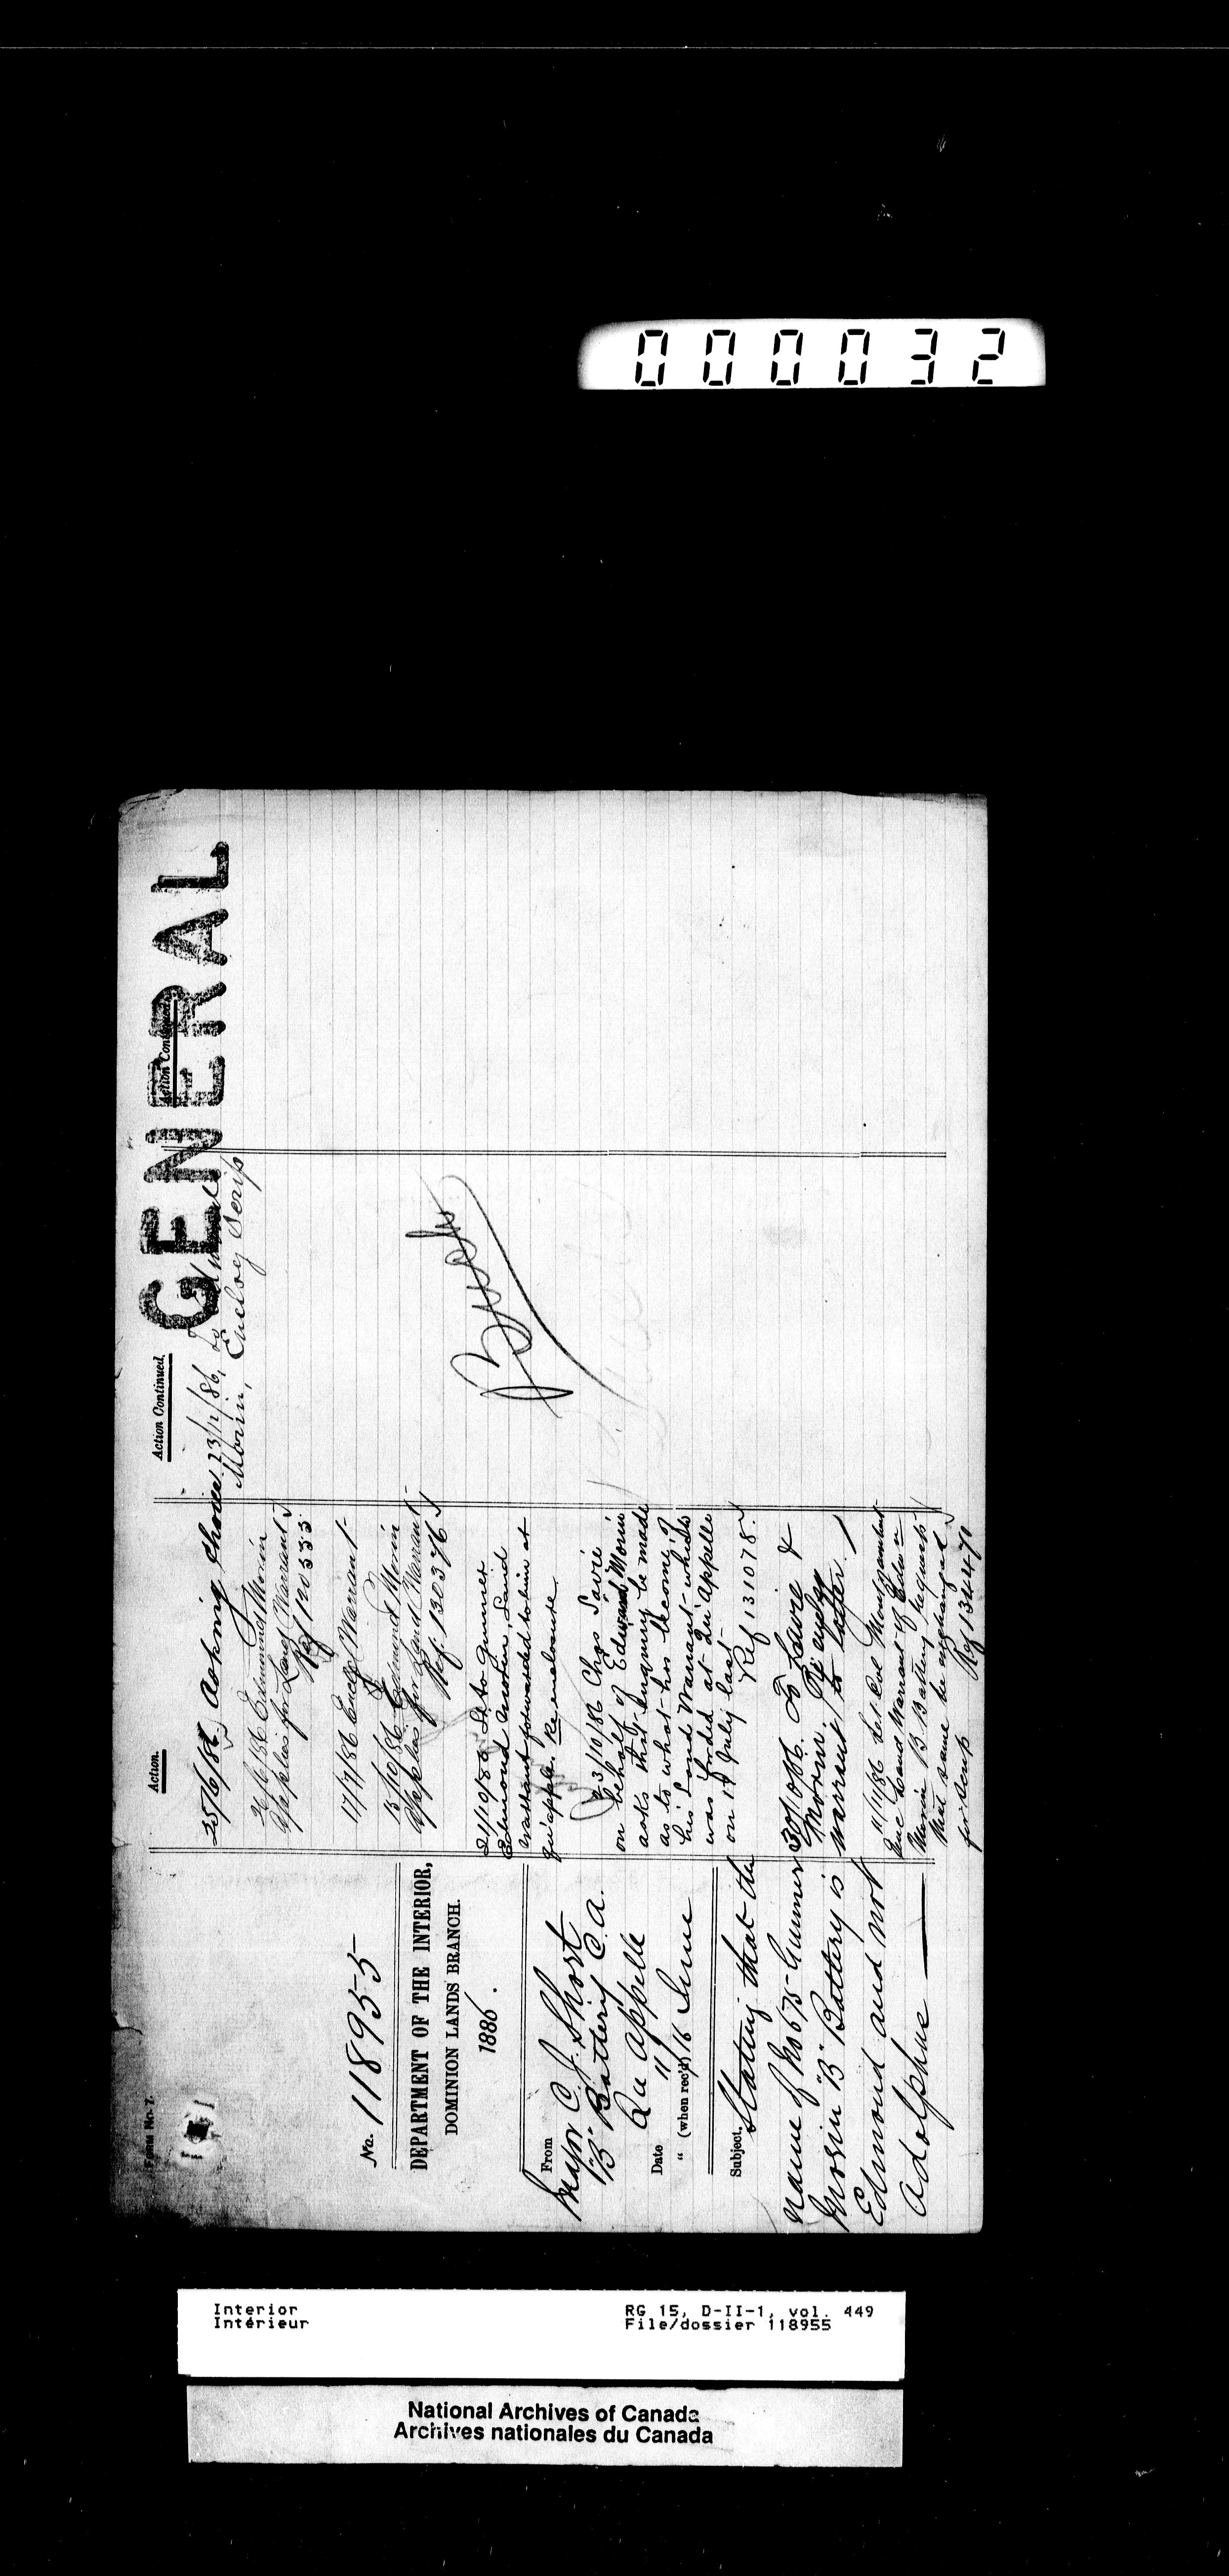 000032
Form No. 7.
No. 118955
DEPARTMENT OF THE INTERIOR,
DOMINION LANDS BRANCH.
1886.
From
Major C. J. Short
"B" Battery C.A.
Qu'Appelle
Date 11
" (when rec'd) 16 June
Subject. Stating that the
name of No 675 Gunner
Morin "B" Battery is
Edmond and not
Adolphus
Action.
25/6/86. Asking choice
26/6/86 Edmund Morin
applies for Land Warrant
Ref 120555
17/7/86 Encl Warrant
13/10/86 Edmund Morin
applies for Land Warrant
Ref. 130376
21/10/86 to Gunner
Edmond Morin, Said
warrant forwarded to him at
Qu'appelle. Re enclosure
23/10/86 Chas Savie
on behalf of Edward Morin
asks that enquiry be made
as to what has become of
his Land Warrant which
was forded at Qu'Appelle
on 17 July last
Ref 131078
30/10/86. To Savie &
Morin. Re encloses
warrant to latter.
11/11/86 Lt. Col Montizambert
Enc Land Warrant of Edwin
Morin "B" Battery requests
that same be exchanged
for scrip
Ref 134471
Action Continued.
23/12/86, to Edmund
Morin, Enclosg Scrip
Action Continued.
GENERAL
Interior
Intérieur
RG 15, D-II-1, vol. 449
File/dossier 118955
National Archives of Canada
Archives nationales du Canada